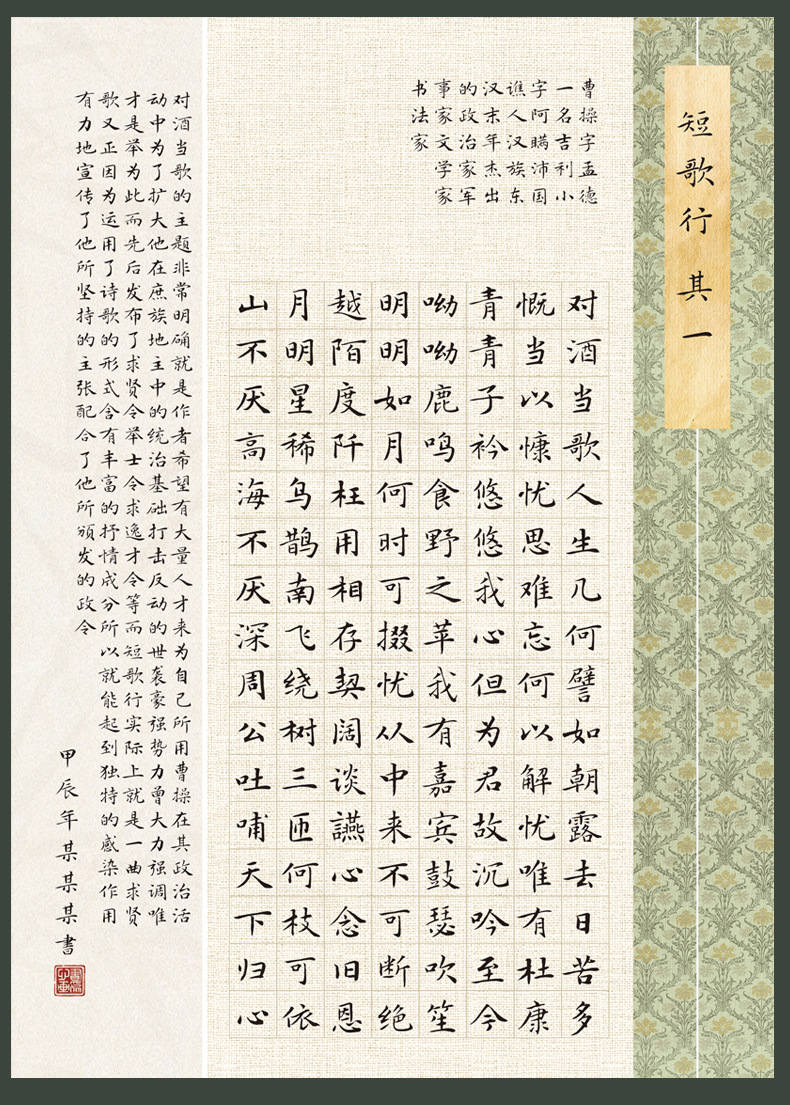 短歌行 其一
曹操字孟德
一名吉利小
字阿瞒沛国
谯人汉族东
汉末年杰出
的政治家军
事家文学家
书法家
对酒当歌人生几何譬如朝露去日苦多
慨当以慷忧思难忘何以解忧唯有杜康
青青子衿悠悠我心但为君故沉吟至今
呦呦鹿鸣食野之苹我有嘉宾鼓瑟吹笙
明明如月何时可掇忧从中来不可断绝
越陌度阡枉用相存契阔谈讌心念旧恩
月明星稀乌鹊南飞绕树三匝何枝可依
山不厌高海不厌深周公吐哺天下归心
对酒当歌的主题非常明确就是作者希望有大量人才来为自己所用曹操在其政治活
动中为了扩大他在庶族地主中的统治基础打击反动的世袭豪强势力曾大力强调唯
才是举为此而先后发布了求贤令举士令求逸才令等而短歌行实际上就是一曲求贤
歌又正因为运用了诗歌的形式含有丰富的抒情成分所以就能起到独特的感染作用
有力地宣传了他所坚持的主张配合了他所颁发的政令
甲辰年某某某書